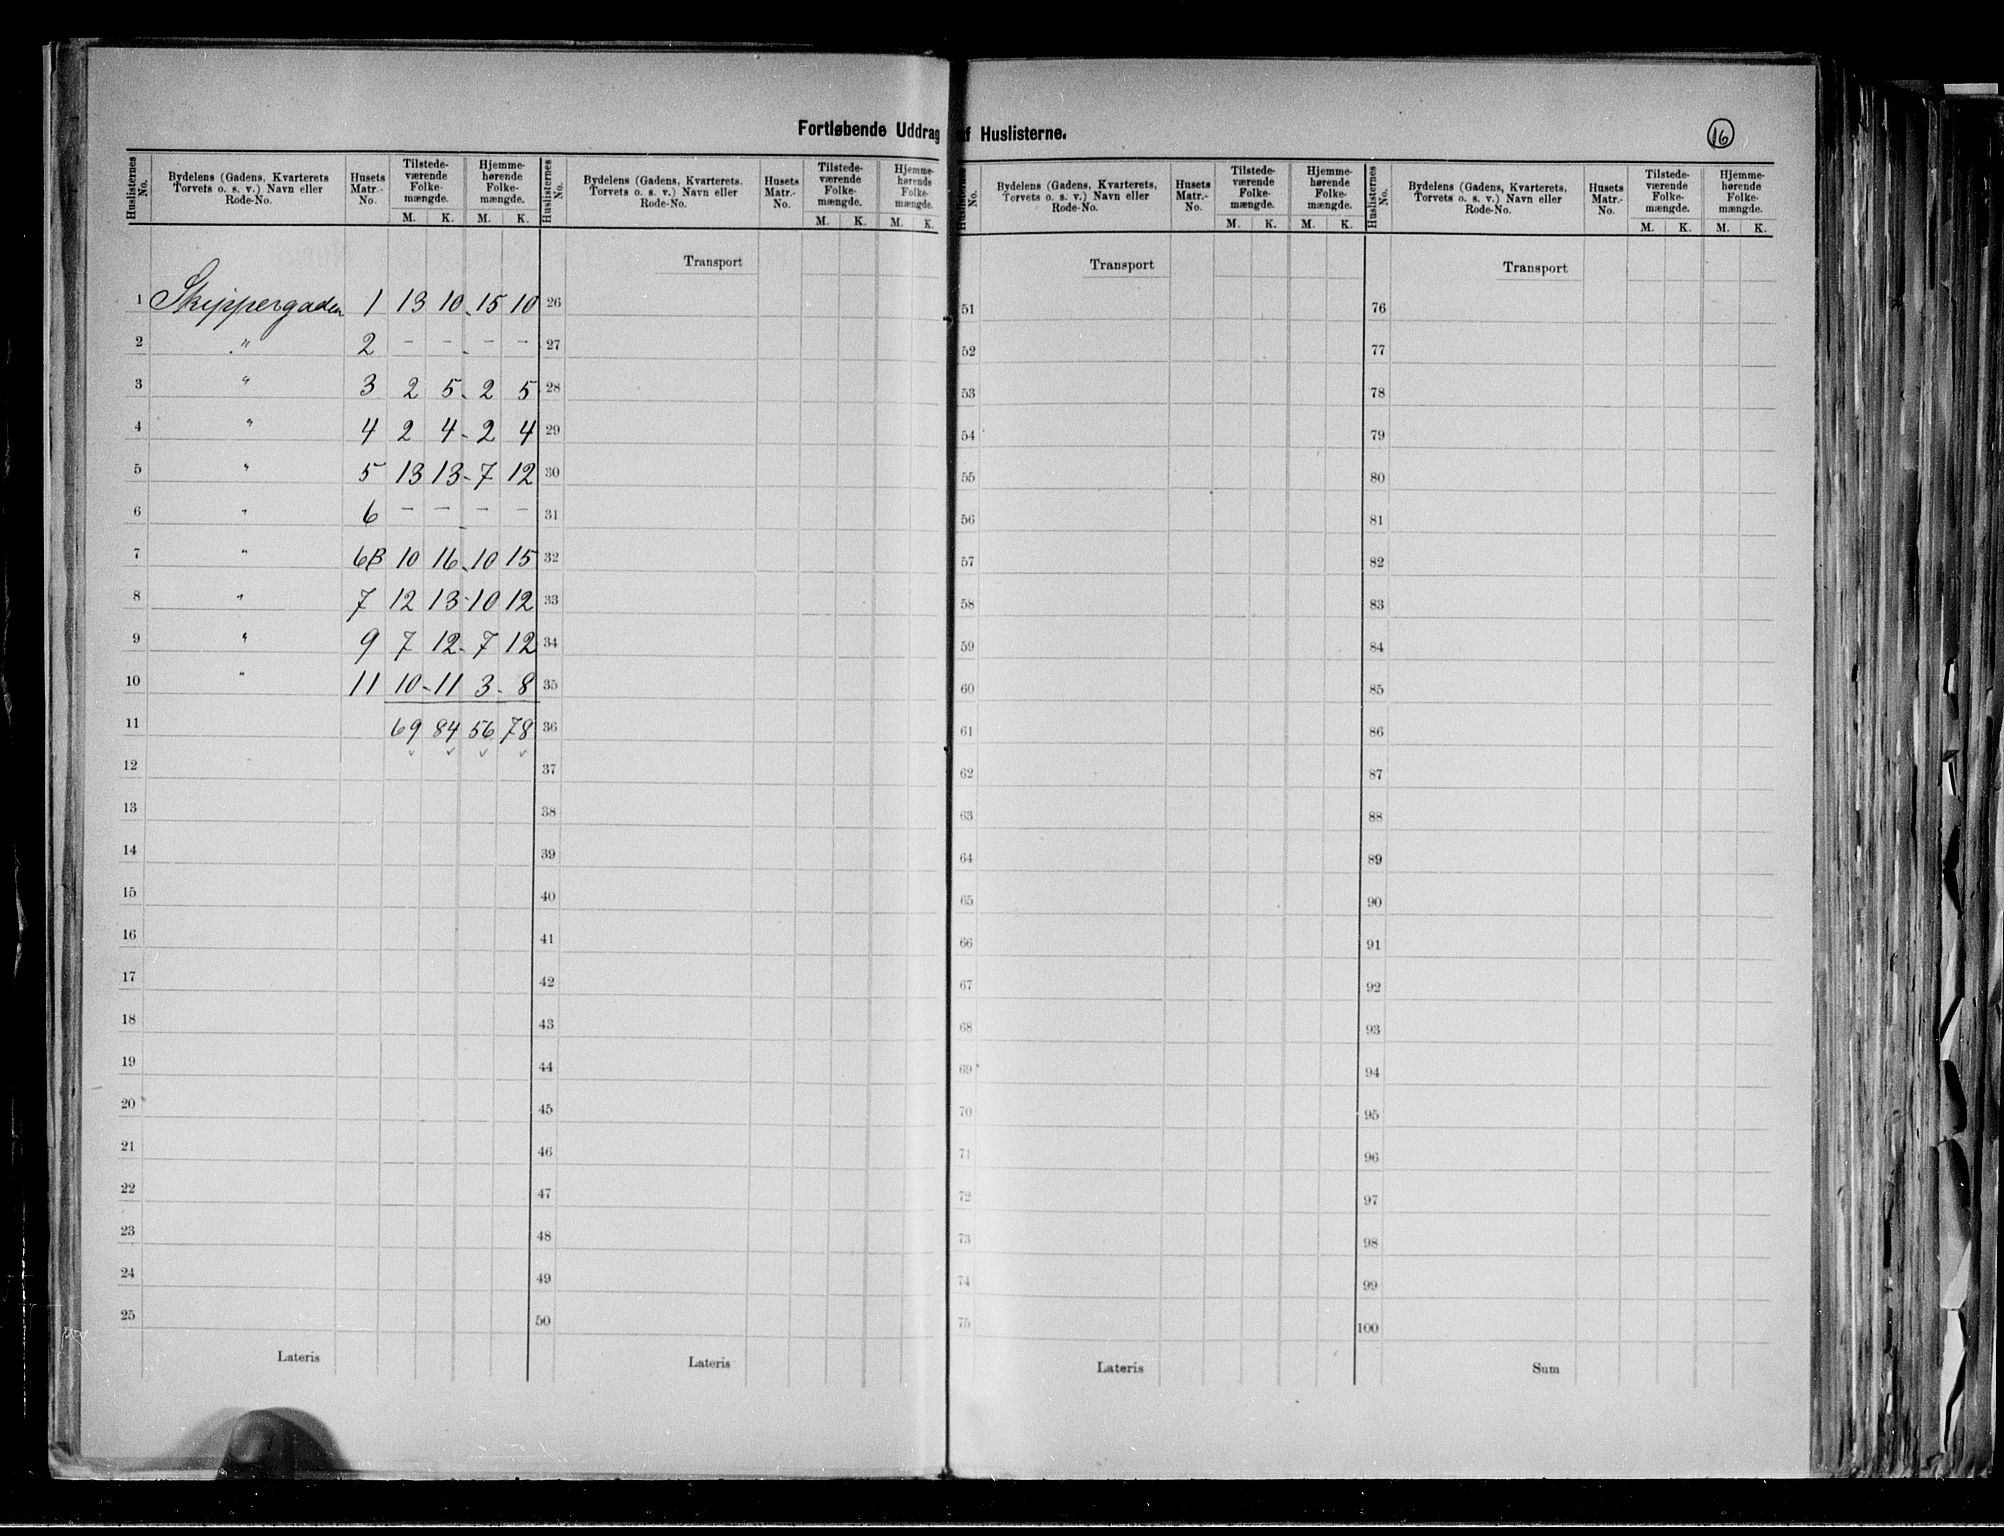 Fortløbende Uddrag af Huslisterne.
16
Huslisternes No. | Bydelens (Gadens, Kvarterets Torvets o. s. v.) Navn eller Rode-No. | Husets Matr.-No. | Tilstedeværende Folkemængde. M. K. | Hjemmehørende Folkemængde. M. K.
Huslisternes No. | Bydelens (Gadens, Kvarterets. Torvets o. s. v.) Navn eller Rode-No. | Husets Matr.-No. | Tilstedeværende Folkemængde. M. K. | Hjemmehørende Folkemængde. M. K.
Huslisternes No. | Bydelens (Gadens, Kvarterets, Torvets o. s. v.) Navn eller Rode-No. | Husets Matr.-No. | Tilstedeværende Folkemængde. M. K. | Hjemmehørende Folkemængde. M. K.
Huslisternes No. | Bydelens (Gadens, Kvarterets, Torvets o. s. v.) Navn eller Rode-No. | Husets Matr.-No. | Tilstedeværende Folkemængde. M. K. | Hjemmehørende Folkemængde. M. K.
1 Skippergaden 1 13 10 15 10
2 " 2 - - - -
3 " 3 2 5 2 5
4 " 4 2 4 2 4
5 " 5 13 13 7 12
6 " 6 - - - -
7 " 6B 10 16 10 15
8 " 7 12 13 10 12
9 " 9 7 12 7 12
10 " 11 10 11 3 8
11 69 84 56 78
12
13
14
15
16
17
18
19
20
21
22
23
24
25
Lateris
Transport
26
27
28
29
30
31
32
33
34
35
36
37
38
39
40
41
42
43
44
45
46
47
48
49
50
Lateris
Transport
51
52
53
54
55
56
57
58
59
60
61
62
63
64
65
66
67
68
69
70
71
72
73
74
75
Lateris
Transport
76
77
78
79
80
81
82
83
84
85
86
87
88
89
90
91
92
93
94
95
96
97
98
99
100
Sum